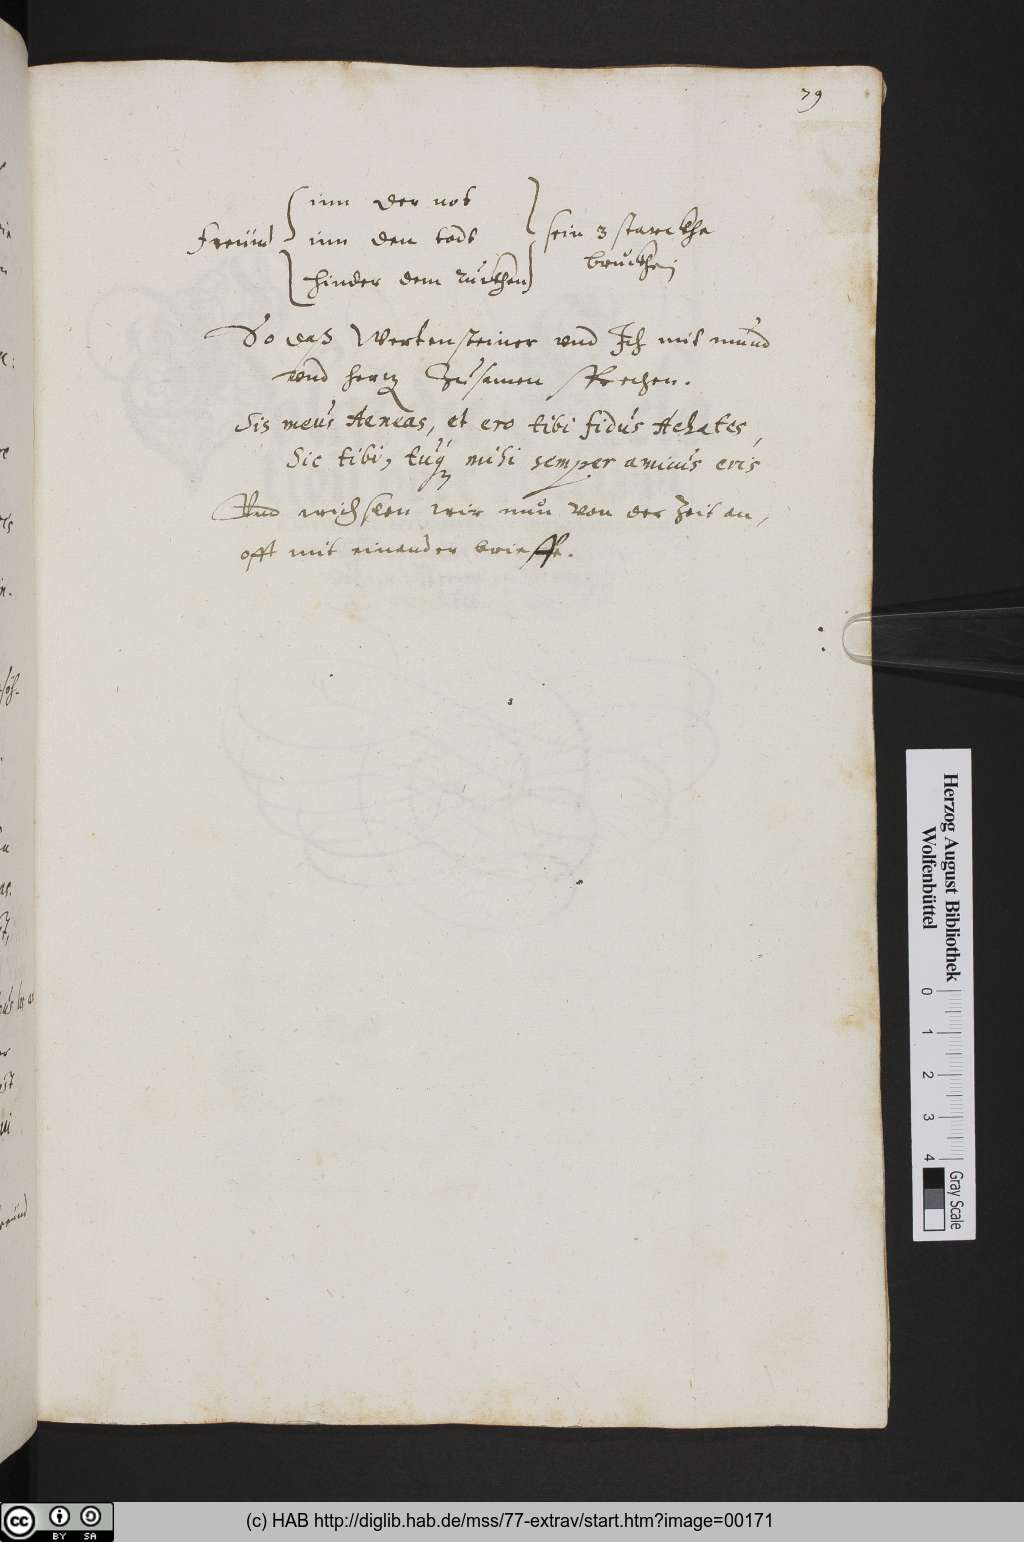 79
inn der not
Freünd inn den todt sein 3 starckhe
hinder dem rückhen bruckhen
So daß Wertensteiner vnd Ich mit mund
vnd hertz Zusamen sprechen.
Sis meus Aeneas, et ero tibi fidus Achates,
Sic tibi, tuq mihi semper amicus eris
Vnd wichslen wir nun von der Zeit an,
offt mit einander brieffe.
Herzog August Bibliothek
Wolfenbüttel
0 1 2 3 4
Gray Scale
cc BY SA
(c) HAB http://diglib.hab.de/mss/77-extrav/start.htm?image=00171